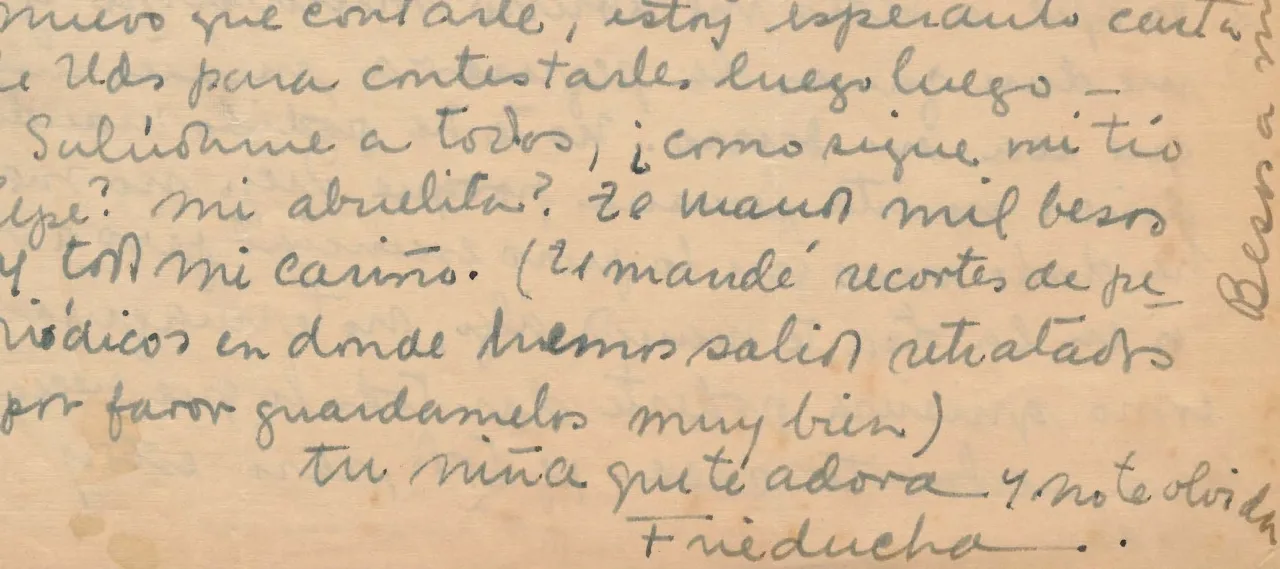 nuevo que contarle, estoy esperando carta
de Uds para contestarles luego luego –
Salúdame a todos, ¿como sigue mi tío
Pepe? mi abuelita? Te mando mil besos
y todo mi cariño. (Te mandé recortes de pe-
riódicos en donde hemos salido retratados
por favor guardamelos muy bien)
tu niña que te adora y no te olvida
Frieducha . .
Besos a